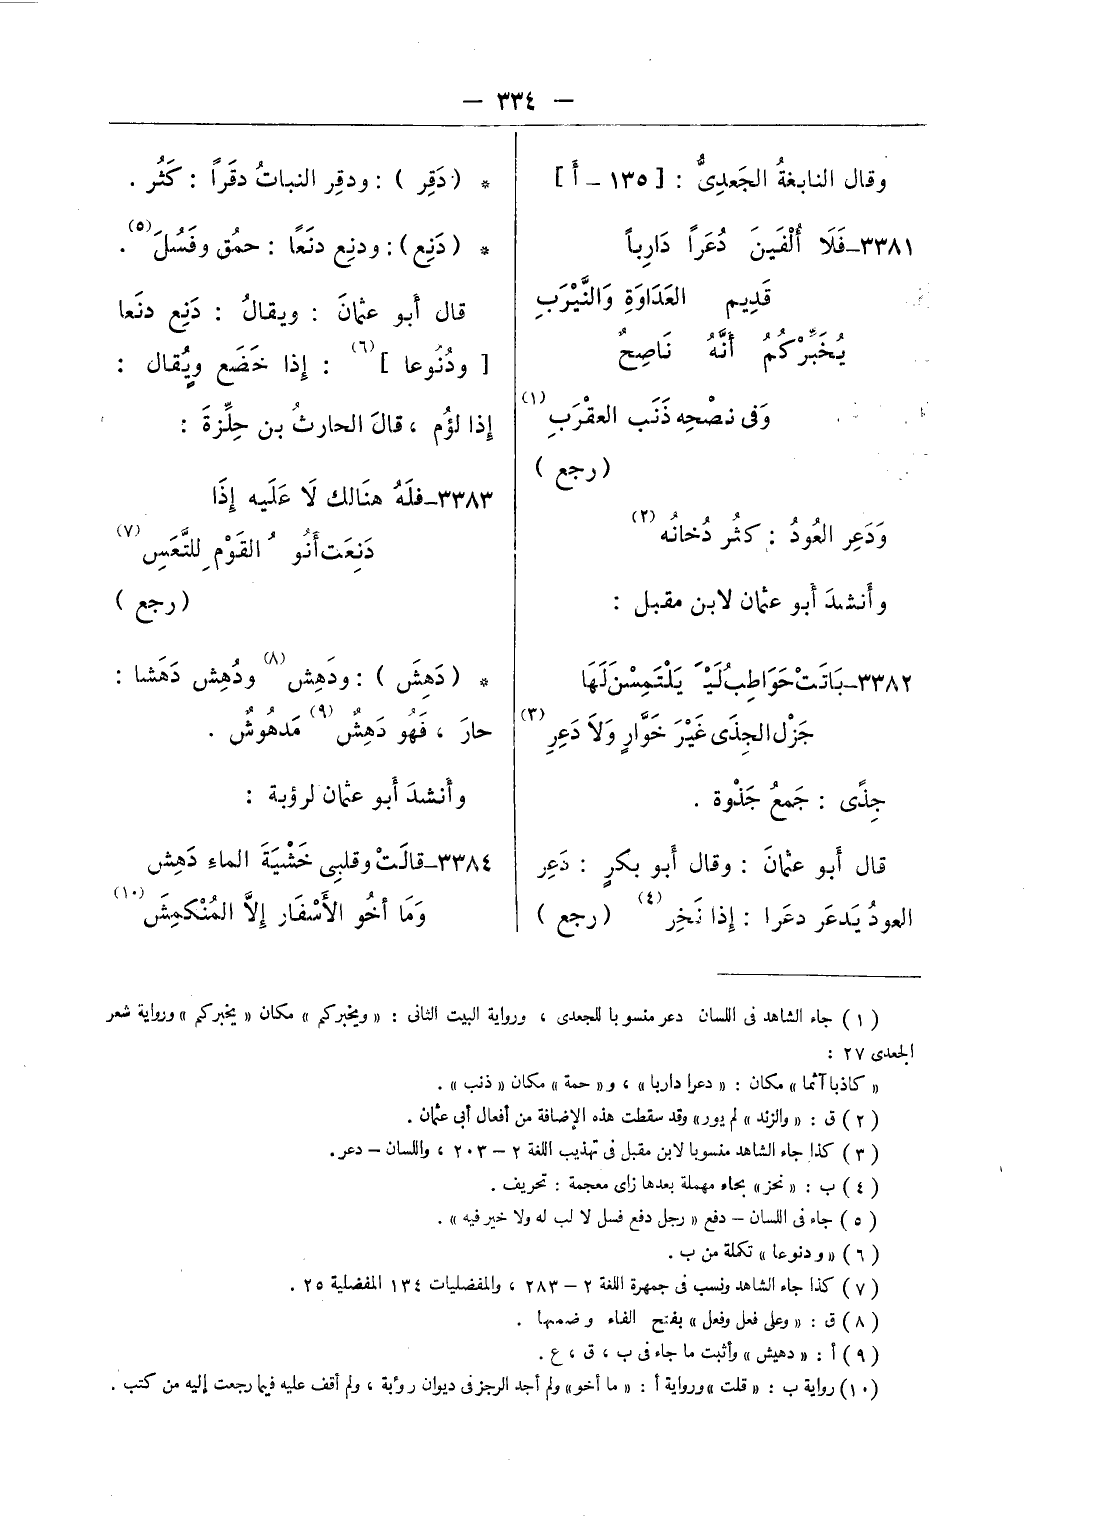 — ٣٣٤ —
وقال النابغةُ الجَعدِىُّ : [ ١٣٥ – أ ]
٣٣٨١–فَلَا أُلْفَيَنَ دُعَراً دَارِباً
قَدِيمِ العَدَاوَةِ وَالنَّيْرَبِ
يُخَبِّرْكُمُ أَنَّهُ نَاصِحٌ
وَفى نصْحِه ذَنَب العقْرَبِ (١)
( رجع )
وَدَعِر العُودُ : كثُر دُخانُه (٢)
وأنشدَ أبو عثمان لابن مقبل :
٣٣٨٢–بَاتَتْ حَوَاطِبُ لَيْلَى يَلْتَمِسْنَ لَهَا
جَزْل الجِذَى غَيْرَ خَوَّارٍ وَلاَ دَعِرِ (٣)
جِذًى : جَمعُ جَذْوة .
قال أبو عثمانَ : وقال أبو بكرٍ : دَعِر
العودُ يَدعَر دعَرا : إذا نَخِر (٤) ( رجع )
* ( دَقِر ) : ودقِر النباتُ دقَراً : كَثُر .
* ( دَنِع ) : ودنِع دنَعًا : حمُق وفَسُلَ (٥) .
قال أبو عثمانَ : ويقالُ : دَنِع دنَعا
[ ودُنُوعا ] (٦) : إذا خَضَع ويُقال :
إذا لؤُم ، قالَ الحارثُ بن حِلِّزةَ :
٣٣٨٣–فلَهُ هنَالك لَا عَلَيه إذَا
دَنِعَت أَنُوفُ القَوْمِ للتَّعَسِ (٧)
( رجع )
* ( دَهِشَ ) : ودَهِش (٨) ودُهِش دَهَشا :
حارَ ، فَهُو دَهِشٌ (٩) مَدهُوشٌ .
وأنشدَ أبو عثمان لرؤبة :
٣٣٨٤–قالَتْ وقلبِى خَشْيَةَ الماءِ دَهِش
وَمَا أخُو الأَسْفَار إلاَّ المُنْكمِشَ (١٠)
( ١ ) جاء الشاهد فى اللسان دعر منسوبا للجعدى ، ورواية البيت الثانى : « ويخبركم » مكان « يخبركم » ورواية شعر
الجعدى ٢٧ :
« كاذبا آثما » مكان : « دعرا داربا » ، و« حمة » مكان « ذنب » .
( ٢ ) ق : « والزند » لم يور» وقد سقطت هذه الإضافة من أفعال أبى عثمان .
( ٣ ) كذا جاء الشاهد منسوبا لابن مقبل فى تهذيب اللغة ٢ – ٢٠٣ ، واللسان – دعر.
( ٤ ) ب : « نحز» بحاء مهملة بعدها زاى معجمة : تحريف .
( ٥ ) جاء فى اللسان – دفع « رجل دفع فسل لا لب له ولا خير فيه » .
( ٦ ) « ودنوعا » تكملة من ب .
( ٧ ) كذا جاء الشاهد ونسب فى جمهرة اللغة ٢ – ٢٨٣ ، والمفضليات ١٣٤ المفضلية ٢٥ .
( ٨ ) ق : « وعلى فعل وفعل » بفتح الفاء وضمها .
( ٩ ) أ : « دهيش » وأثبت ما جاء فى ب ، ق ، ع .
( ١٠ ) رواية ب : « قلت » ورواية أ : « ما أخو » ولم أجد الرجز فى ديوان رؤبة ، ولم أقف عليه فيما رجعت إليه من كتب .